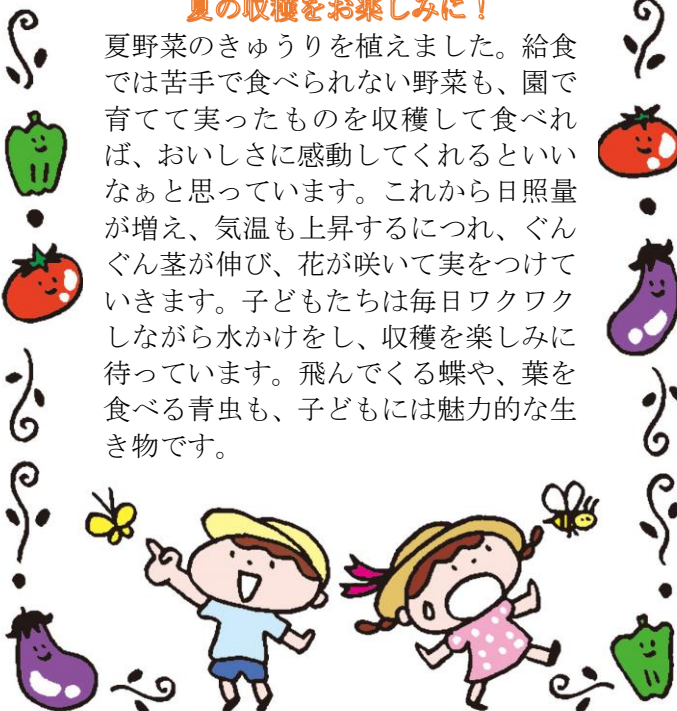 夏の収穫をお楽しみに！
夏野菜のきゅうりを植えました。給食
では苦手で食べられない野菜も、園で
育てて実ったものを収穫して食べれ
ば、おいしさに感動してくれるといい
なぁと思っています。これから日照量
が増え、気温も上昇するにつれ、ぐん
ぐん茎が伸び、花が咲いて実をつけて
いきます。子どもたちは毎日ワクワク
しながら水かけをし、収穫を楽しみに
待っています。飛んでくる蝶や、葉を
食べる青虫も、子どもには魅力的な生
き物です。